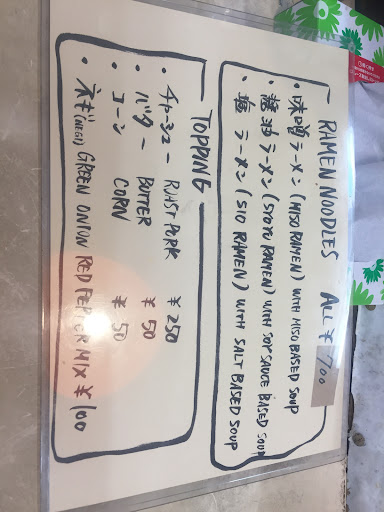 RAMEN NOODLES ALL ¥700
・味噌ラーメン (MISO RAMEN) WITH MISO BASED SOUP
・醤油ラーメン (SYOYU RAMEN) WITH SOY SAUCE BASED SOUP
・塩 ラーメン (SIO RAMEN) WITH SALT BASED SOUP
TOPPING
・チャーシュー ROAST PORK ¥250
・バター BUTTER ¥50
・コーン CORN ¥50
・ネギ(NEGI) GREEN ONION RED PEPPER MIX ¥100